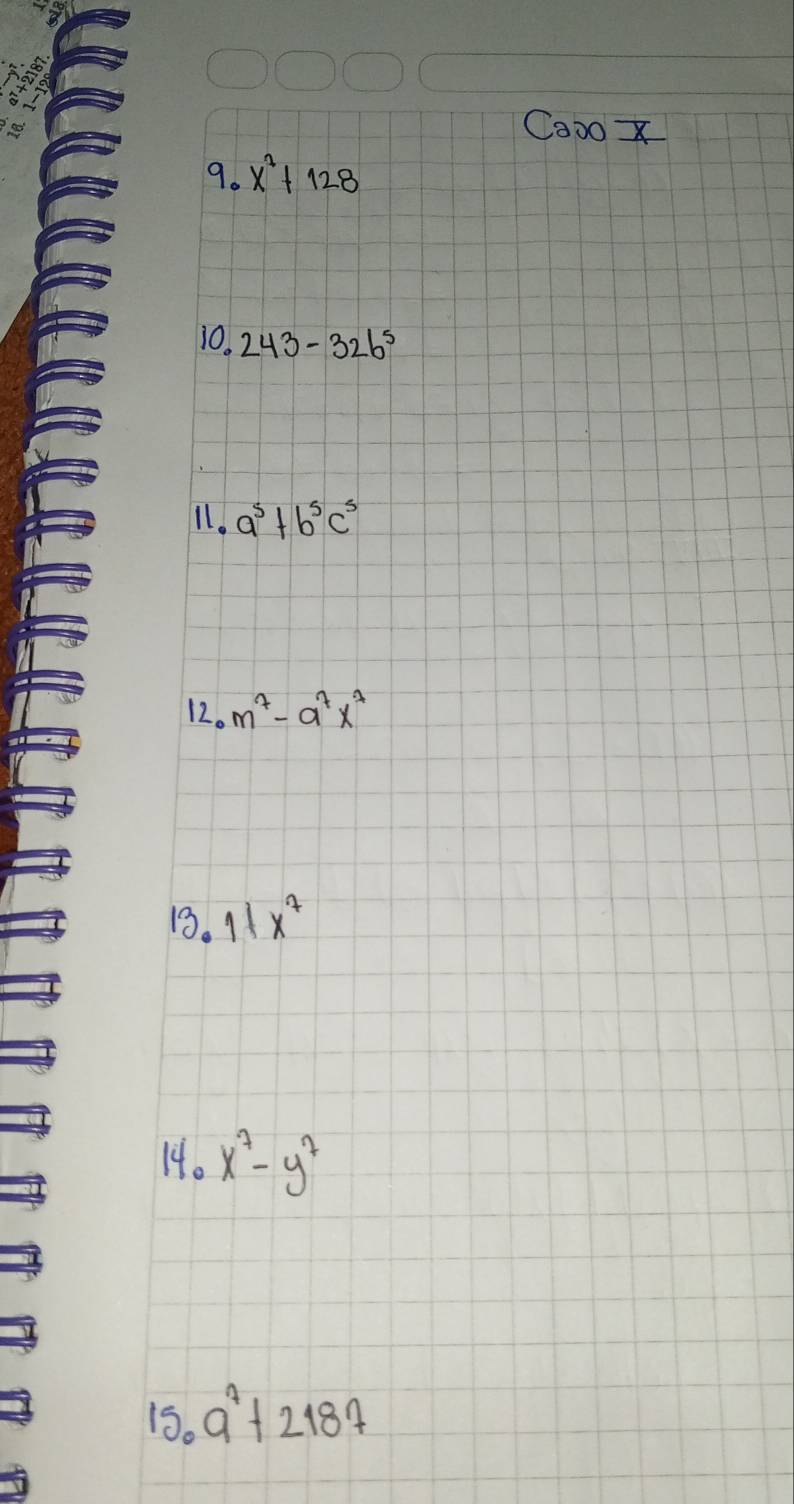 Caso X
9. x⁷ + 128
10. 243 - 32b⁵
11. a⁵ + b⁵c⁵
12. m⁷ - a⁷x⁷
13. 1 + x⁷
14. x⁷ - y⁷
15. a⁷ + 2187
a⁷+2187.